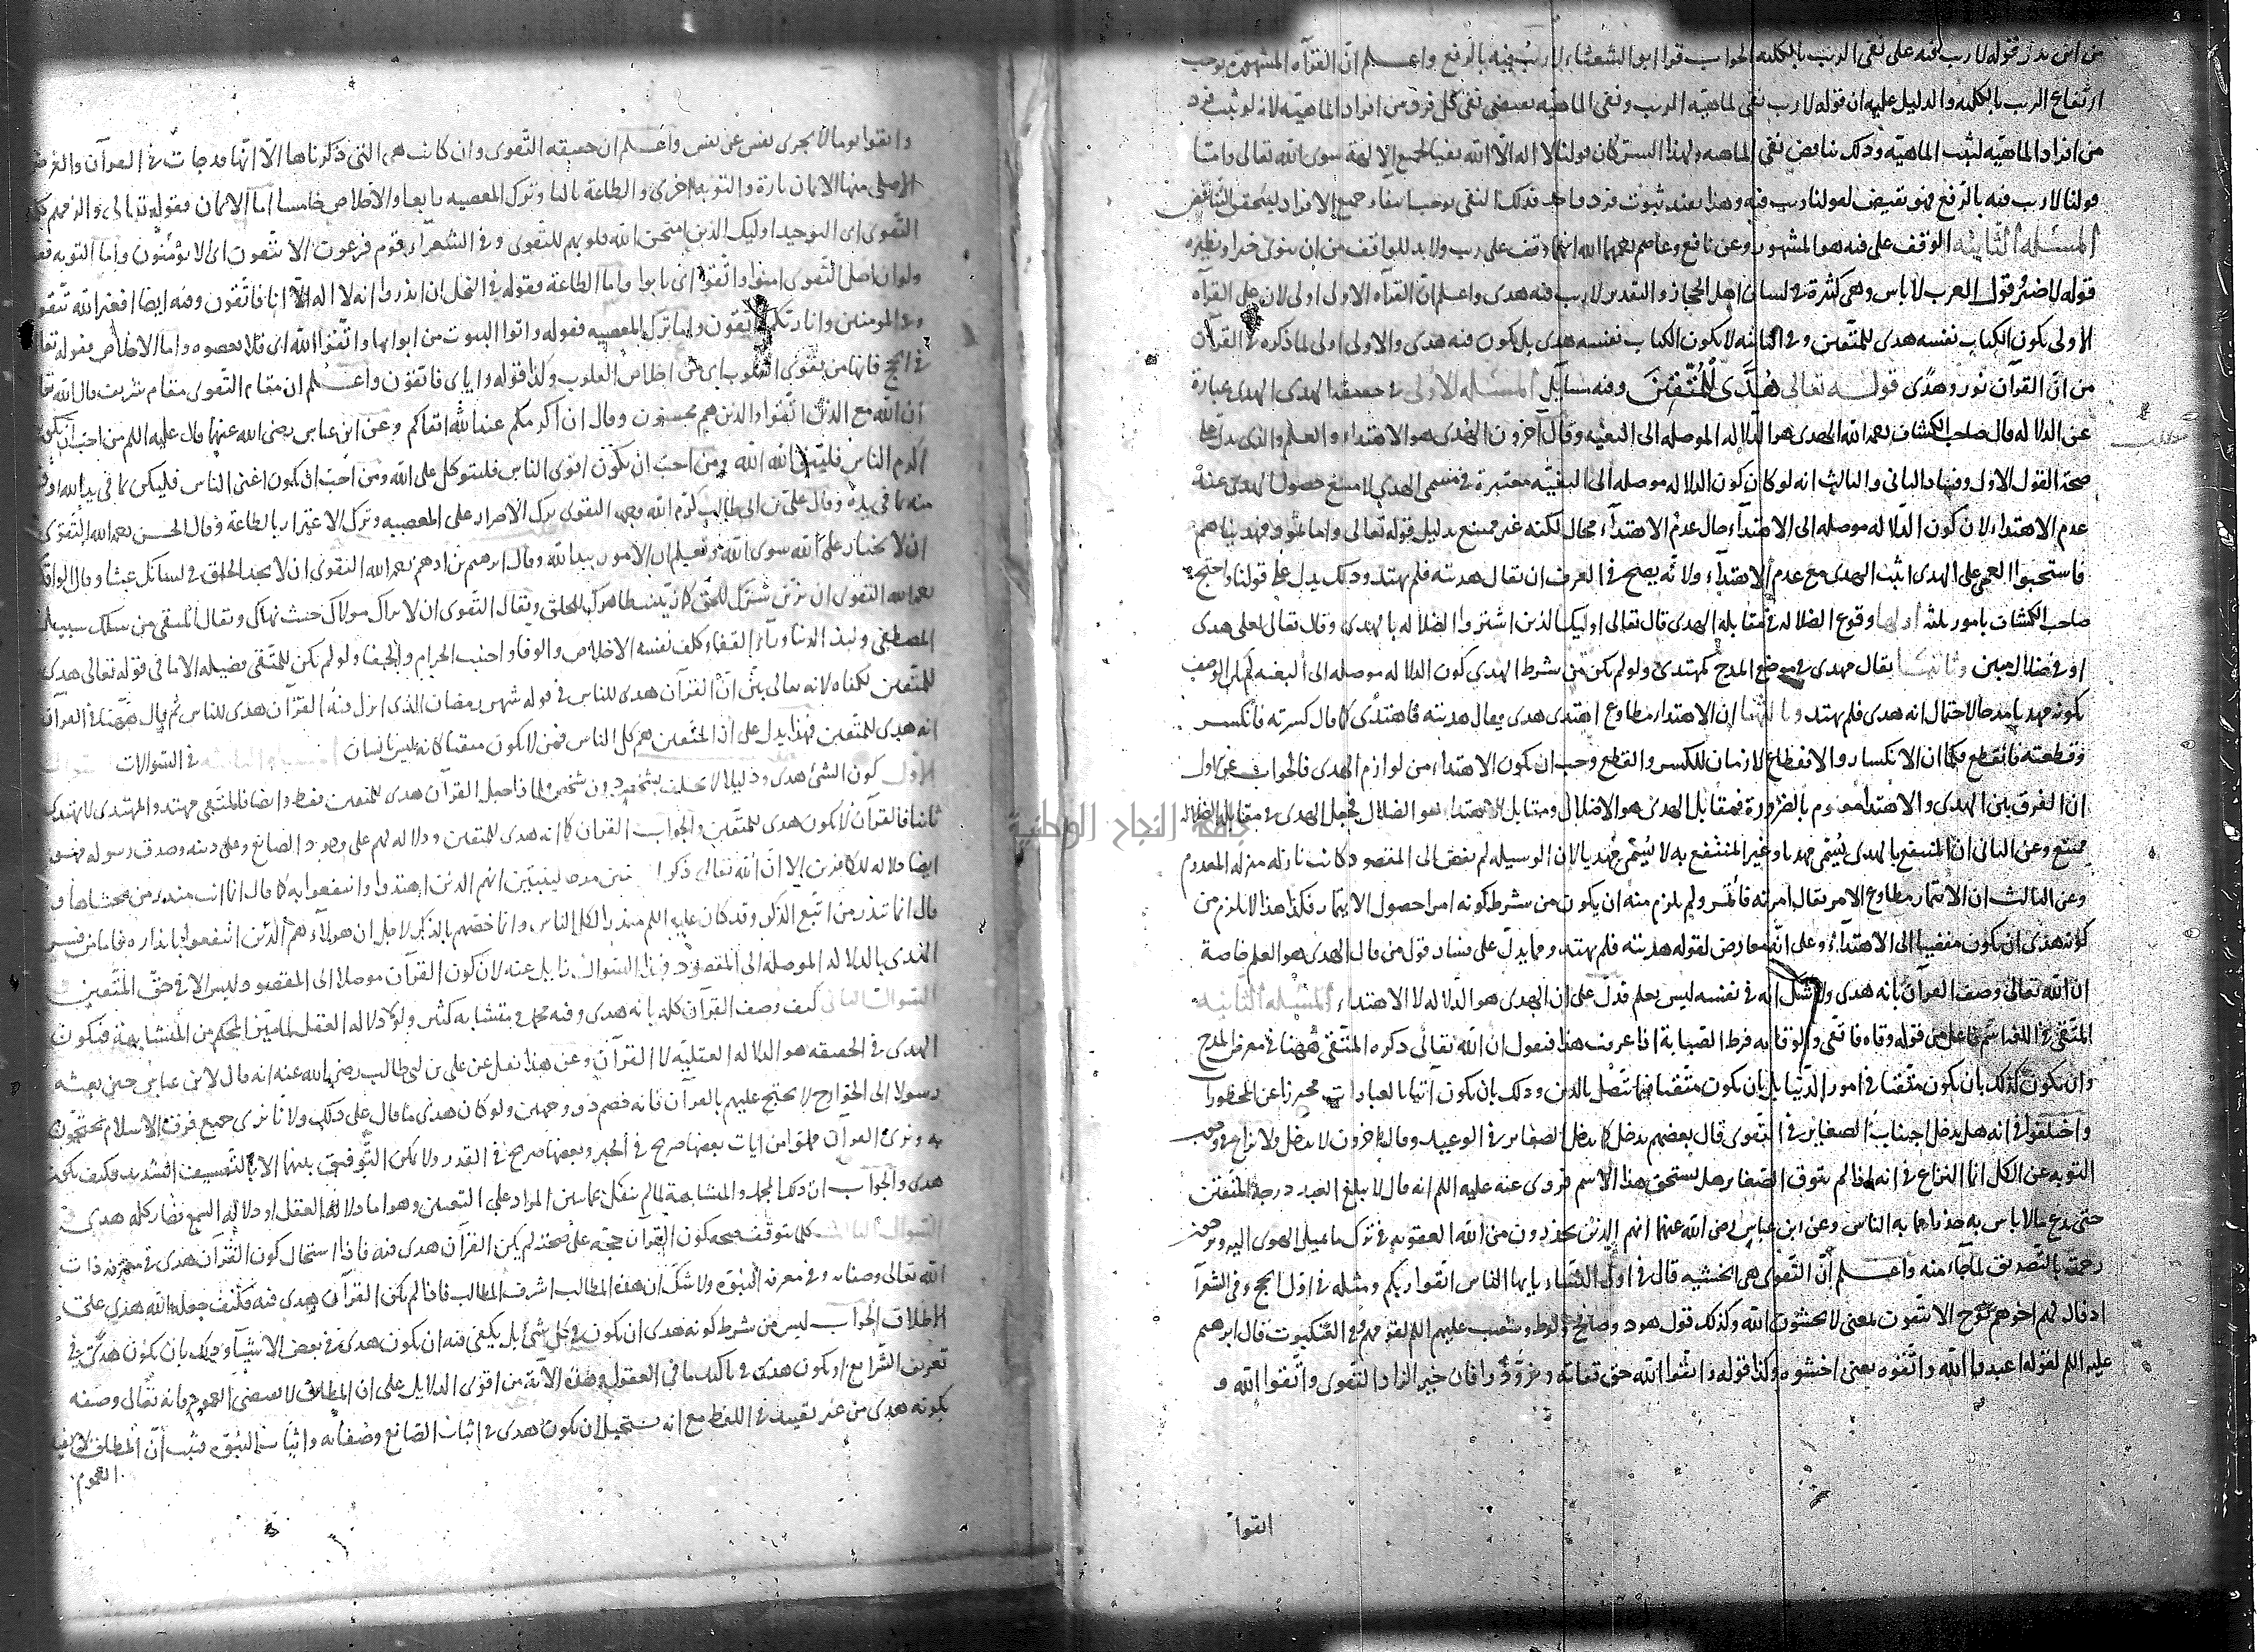 من اين يدل قوله لا ريب فيه على نفى الريب بالكلية الجواب قرا ابو الشعثاء لا ريب فيه بالرفع واعلم ان القرآة المشهورة توجب
ارتفاع الريب بالكلية والدليل عليه ان قوله لا ريب نفى لماهية الريب ونفى الماهية يقتضى نفى كل فرد من افراد الماهية لانه لو ثبت فرد
من افراد الماهية لثبت الماهية وذلك يناقض نفى الماهية ولهذا السر كان قولنا لا اله الا الله نفيا لجميع الالهة سوى الله تعالى واما
قولنا لا ريب فيه بالرفع فهو نقيض لقولنا ريب فيه وهذا يفيد ثبوت فرد واحد فذلك النفى يوجب انتفاء جميع الافراد ليتحقق التناقض
المسئلة الثانية الوقف على فيه هو المشهور وعن نافع وعاصم رحمهما الله انهما وقف على ريب ولا بد للواقف من ان ينوى خبرا ونظيره
قوله لا ضير وقول العرب لا باس وهى كثيرة فى لسان اهل الحجاز والتقدير لا ريب فيه فيه هدى واعلم ان القرآة الاولى اولى لان على القرآة
الاولى يكون الكتاب نفسه هدى للمتقين وفى الثانية لا يكون الكتاب نفسه هدى بل يكون فيه هدى والاولى اولى لما ذكره فى القرآن
من ان القرآن نور وهدى قوله تعالى هُدًى لِلْمُتَّقِينَ وفيه مسايل المسئلة الاولى فى حقيقة الهدى الهدى عبارة
عن الدلالة قال صاحب الكشاف رحمه الله الهدى هو الدلالة الموصلة الى البغية وقال آخرون الهدى هو الاهتداء والعلم والذى يدل على
صحة القول الاول وفساد الثانى والثالث انه لو كان كون الدلالة موصلة الى البغية معتبرة فى مسمى الهدى لامتنع حصول الهدى عند
عدم الاهتداء لان كون الدلالة موصلة الى الاهتداء حال عدم الاهتداء محال لكنه غير ممتنع بدليل قوله تعالى واما ثمود فهديناهم
فاستحبوا العمى على الهدى اثبت الهدى مع عدم الاهتداء ولانه يصح فى العرف ان يقال هديته فلم يهتد وذلك يدل على قولنا واحتج
صاحب الكشاف بامور ثلثة اولها وقوع الضلالة فى مقابلة الهدى قال تعالى اوليك الذين اشتروا الضلالة بالهدى وقال تعالى لعلى هدى
او فى ضلال مبين وثانيها يقال مهدى فى موضع المدح كمهتدى ولو لم يكن من شرط الهدى كون الدلالة موصلة الى البغية لم يكن الوصف
بكونه مهديا مدحا لاحتمال انه هدى فلم يهتد وثالثها ان الاهتداء مطاوع اهتدى هدى يقال هديته فاهتدى كما يقال كسرته فانكسر
وقطعته فانقطع فكما ان الانكسار والانقطاع لازمان للكسر والقطع وجب ان يكون الاهتداء من لوازم الهدى فالجواب عن الاول
ان الفرق بين الهدى والاهتداء معلوم بالضرورة فمقابل الهدى هو الاضلال ومقابل الاهتداء هو الضلال فجعل الهدى فى مقابلة الضلالة
ممتنع وعن الثانى ان المنتفع بالهدى يسمى مهديا وغير المنتفع به لا يسمى مهديا لان الوسيلة لم تفض الى المقصود كانت نازلة منزلة المعدوم
وعن الثالث ان الايتمار مطاوع الامر يقال امرته فائتمر ولم يلزم منه ان يكون من شرط كونه امرا حصول الايتمار فكذا هذا لا يلزم من
كونه هدى ان يكون مفضيا الى الاهتداء وعلى انه معارض لقوله هديته فلم يهتد ومما يدل على فساد قول من قال الهدى هو العلم خاصة
ان الله تعالى وصف القرآن بانه هدى ولا شك انه فى نفسه ليس بعلم فدل على ان الهدى هو الدلالة لا الاهتداء المسئلة الثانية
المتقى فى اللغة اسم فاعل من قوله وقاه فاتقى والوقاية فرط الصيانة اذا عرفت هذا فنقول ان الله تعالى ذكره المتقى ههنا فى معرض المدح
وان يكون كذلك بان يكون متقيا فى امور الدنيا بل بان يكون متقيا فيما يتصل بالدين وذلك بان يكون آتيا بالعبادات محترزا عن المحظورا
واختلفوا فى انه هل يدخل اجتناب الصغاير فى التقوى قال بعضهم يدخل كما يدخل الصغاير فى الوعيد وقال اخرون لا يدخل ولا نزاع فى وجوب
التوبة عن الكل انما النزاع فى انه اذا لم يتوق الصغاير هل يستحق هذا الاسم فروى عنه عليه السلم انه قال لا يبلغ العبد درجة المتقين
حتى يدع ما لا باس به حذرا مما به الباس وعن ابن عباس رضى الله عنهما انهم الذين يحذرون من الله العقوبة فى ترك ما يميل الهوى اليه ويرجون
رحمته بالتصديق لما جاء منه واعلم ان التقوى هى الخشية قال فى اول النساء يايها الناس اتقوا ربكم ومثله فى اول الحج وفى الشعرآ
اذ قال لهم اخوهم نوح الا تتقون يعنى لا يخشون الله وكذلك قول هود وصالح ولوط وشعيب عليهم السلم لقومهم وفى العنكبوت قال ابرهيم
عليه السلم لقومه اعبدوا الله واتقوه يعنى اخشوه وكذا قوله واتقوا الله حق تقاته وتزودوا فان خير الزاد التقوى واتقوا الله و
اتقوا
واتقوا يوما لا يجزى نفس عن نفس واعلم ان حقيقة التقوى وان كانت هى التى ذكرناها الا انها قد جات فى القرآن والغرض
الاصلى منها الايمان تارة والتوبة اخرى والطاعة ثالثا وترك المعصية رابعا والاخلاص خامسا اما الايمان فقوله تعالى والزمهم كلمة
التقوى اى التوحيد اوليك الذين امتحن الله قلوبهم للتقوى وفى الشعرآء قوم فرعون الا يتقون اى لا يؤمنون واما التوبة فقوله
ولو ان اهل التقوى امنوا واتقوا اى تابوا واما الطاعة فقوله فى النحل ان انذروا انه لا اله الا انا فاتقون وفيه ايضا افغير الله تتقون
وفى المومنين وانا ربكم فاتقون واما ترك المعصية فقوله واتوا البيوت من ابوابها واتقوا الله اى فلا تعصوه واما الاخلاص فقوله تعالى
فى الحج فانها من تقوى القلوب اى من اخلاص القلوب وكذا قوله واياى فاتقون واعلم ان مقام التقوى مقام شريف قال الله تعالى
ان الله مع الذين اتقوا والذين هم محسنون وقال ان اكرمكم عند الله اتقاكم وعن ابن عباس رضى الله عنهما قال عليه السلم من احب ان يكون
اكرم الناس فليتق الله ومن احب ان يكون اقوى الناس فليتوكل على الله ومن احب ان يكون اغنى الناس فليكن بما فى يد الله اوثق
منه بما فى يده وقال على بن ابى طالب كرم الله وجهه التقوى ترك الاصرار على المعصية وترك الاغترار بالطاعة وقال الحسن رحمه الله التقوى
ان لا يختار على الله سوى الله وتعلم ان الامور بيد الله وقال ابرهيم بن ادهم رحمه الله التقوى ان لا يجد الخلق فى لسانك عيبا وقال الواقدى
رحمه الله التقوى ان تزين سرك للحق كما زينت ظاهرك للخلق ويقال التقوى ان لا يراك مولاك حيث نهاك ويقال المتقى من سلك سبيل
المصطفى ونبذ الدنيا ورآء القفاء وكلف نفسه الاخلاص والوفا واجتنب الحرام والجفا ولو لم يكن للمتقى فضيلة الا ما فى قوله تعالى هدى
للمتقين لكفاه لانه تعالى بين ان القرآن هدى للناس فى قوله شهر رمضان الذى انزل فيه القرآن هدى للناس ثم قال ههنا فى القرآن
انه هدى للمتقين فهذا يدل على ان المتقين هم كل الناس فمن لا يكون متقيا كانه ليس بانسان المسئلة الثالثة فى السوالات السوال
الاول كون الشئ هدى ودليلا لا يختلف بشخص دون شخص فلماذا جعل القرآن هدى للمتقين فقط وايضا فالمتقى مهتد والمهتدى لا يهتدى
ثانيا فالقرآن لا يكون هدى للمتقين والجواب القران كما انه هدى للمتقين ودلالة لهم على وجود الصانع وعلى دينه وصدق رسوله فهو
ايضا دلالة للكافرين الا ان الله تعالى ذكر المتقين مدحا ليبين انهم الذين اهتدوا وانتفعوا به كما قال انما انت منذر من يخشاها و
قال انما تنذر من اتبع الذكر وقد كان عليه السلم منذرا لكل الناس وانما خصهم بالذكر لاجل ان هولآء هم الذين انتفعوا بانذاره فاما من فسر
الهدى بالدلالة الموصلة الى المقصود فهذا السوال زايل عنه لان كون القرآن موصلا الى المقصود وليس الا فى حق المتقين
السوال الثانى كيف وصف القرآن كله بانه هدى وفيه مجمل ومتشابه كثير ولولا دلالة العقل لما تميز المحكم من المتشابهة فيكون
الهدى فى الحقيقة هو الدلالة العقلية لا القرآن وعن هذا نقل عن على بن ابى طالب رضى الله عنه انه قال لابن عباس حين بعثه
رسولا الى الخوارج لا تحتج عليهم بالقرآن فانه خصم ذو وجهين ولو كان هدى ما قال على ذلك ولانا نرى جميع فرق الاسلام يحتجون
به ونرى القرآن مملوا من ايات بعضها صريح فى الجبر وبعضها صريح فى القدر ولا يمكن التوفيق بينهما الا بالتعسف الشديد فكيف يكون
هدى والجواب ان ذلك المجمل والمتشابهة لما لم ينفك عما يبين المراد على التعيين وهو اما دلالة العقل او دلالة السمع فصار كله هدى
السوال الثالث كلما يتوقف صحة كون القرآن حجة على صحته لم يكن القرآن هدى فيه فاذا استحال كون القرآن هدى فى معرفة ذات
الله تعالى وصفاته وفى معرفة النبوة ولا شك ان هذه المطالب اشرف المطالب فاذا لم يكن القرآن هدى فيه فكيف جعله الله هدى على
الاطلاق الجواب ليس من شرط كونه هدى ان يكون فى كل شئ بل يكفى فيه ان يكون هدى فى بعض الاشيآء وذلك بان يكون هدى فى
تعريف الشرايع او يكون هدى فى تاكيد ما فى العقول وهذه الآية من اقوى الدلايل على ان المطلق لا يقتضى العموم فانه تعالى وصفه
بكونه هدى من غير تقييد فى اللفظ مع انه يستحيل ان يكون هدى فى اثبات الصانع وصفاته واثبات النبوة فثبت ان المطلق لا يفيد
العموم
جامعة النجاح الوطنية